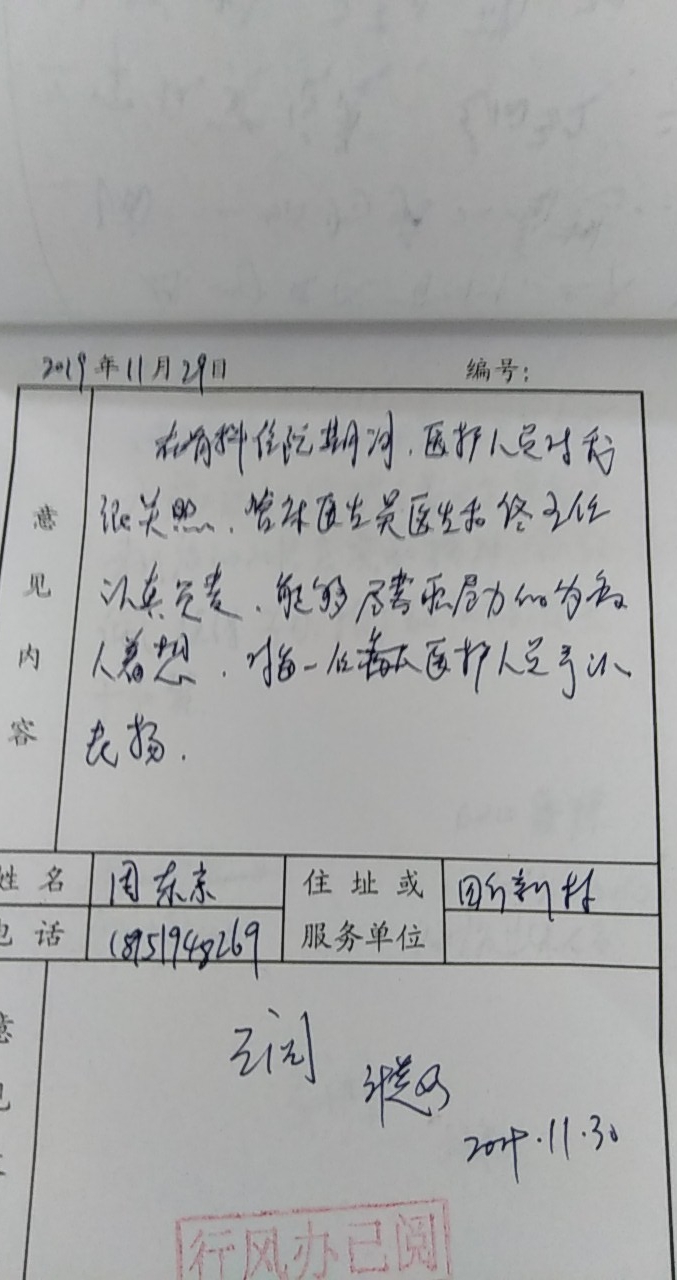 2019年11月29日 编号:
在骨科住院期间,医护人员对我
很关照、管床医生吴医生和佟主任
认真负责、能够尽心尽力的为病
人着想,对每一位医护人员予以
表扬.
意见内容
姓名 周东京 住址或服务单位
电话 18951948269
已阅
11.30
行风办已阅